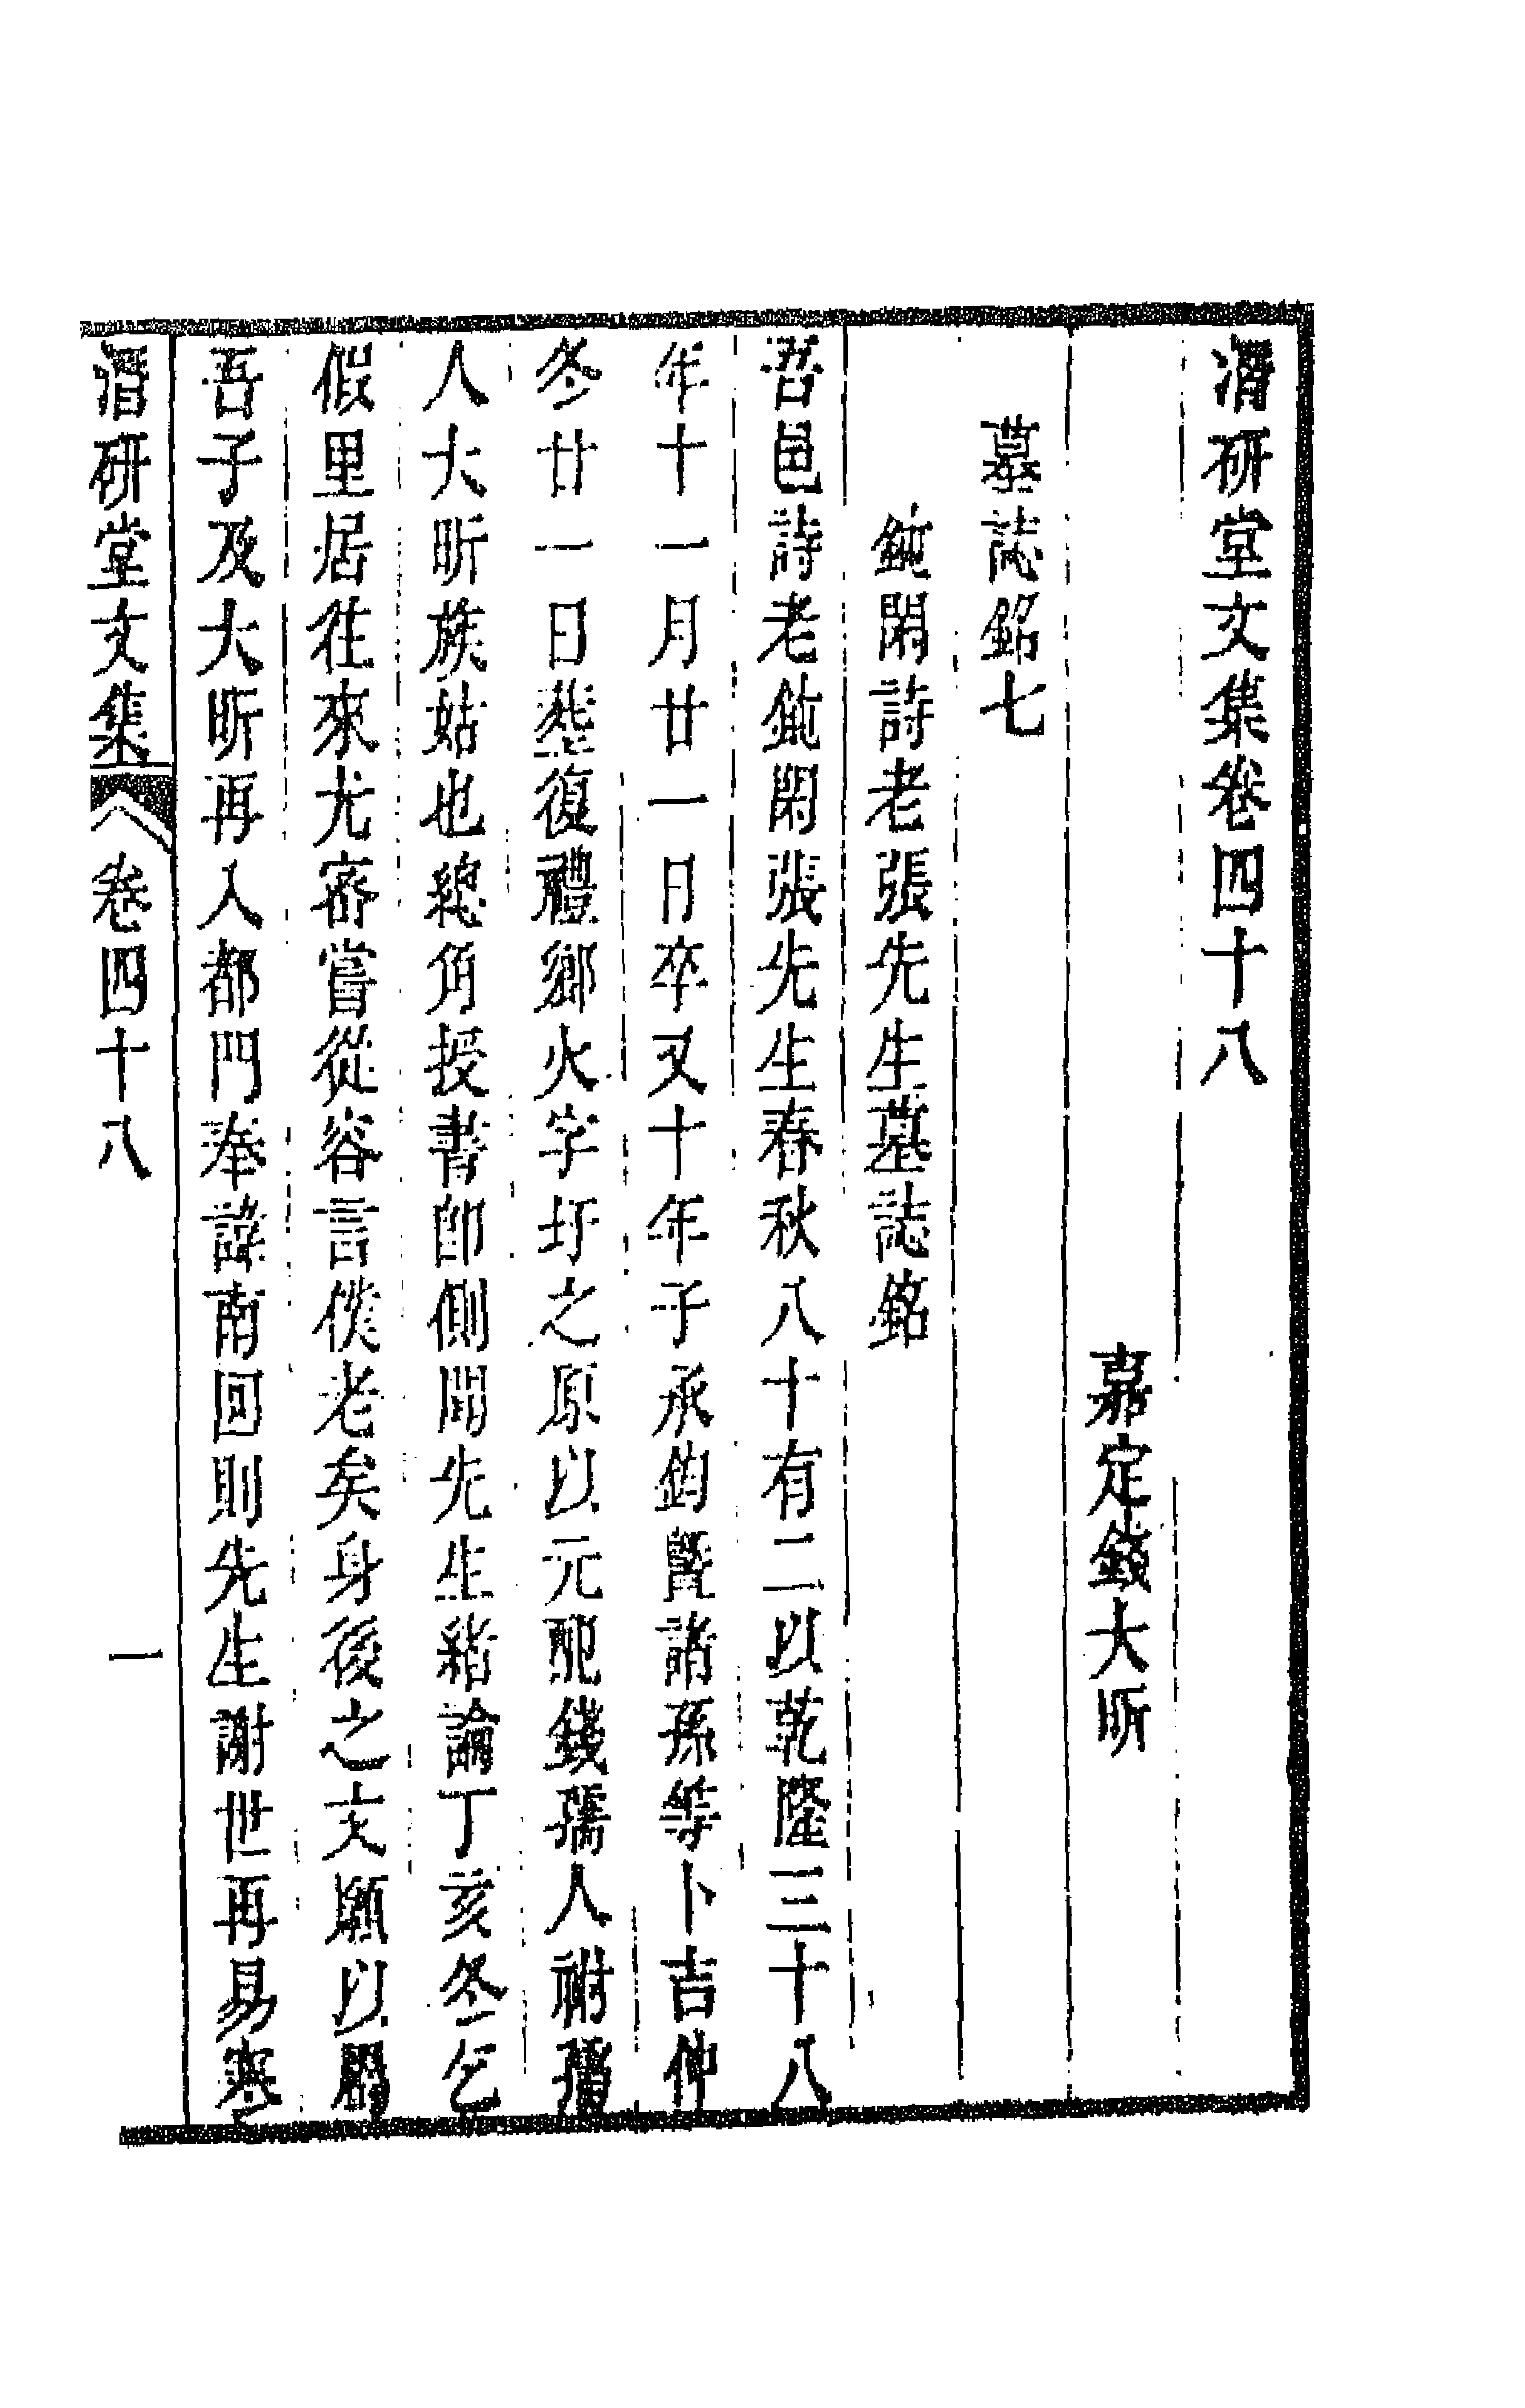 潛研堂文集卷四十八
嘉定錢大昕
墓誌銘七
鈍閑詩老張先生墓誌銘
吾邑詩老鈍閑張先生春秋八十有二以乾隆三十八
年十一月廿一日卒又十年子承鈞暨諸孫等卜吉仲
冬廿一日葬復禮鄉火字圩之原以元配錢孺人祔孺
人大昕族姑也總角授書即側聞先生緒論丁亥冬乞
假里居往來尤密嘗從容言僕老矣身後之文願以屬
吾子及大昕再入都門奉諱南回則先生謝世再易寒
潛研堂文集 卷四十八 一